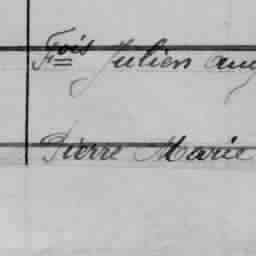 Fois Julien aug
Pierre Marie